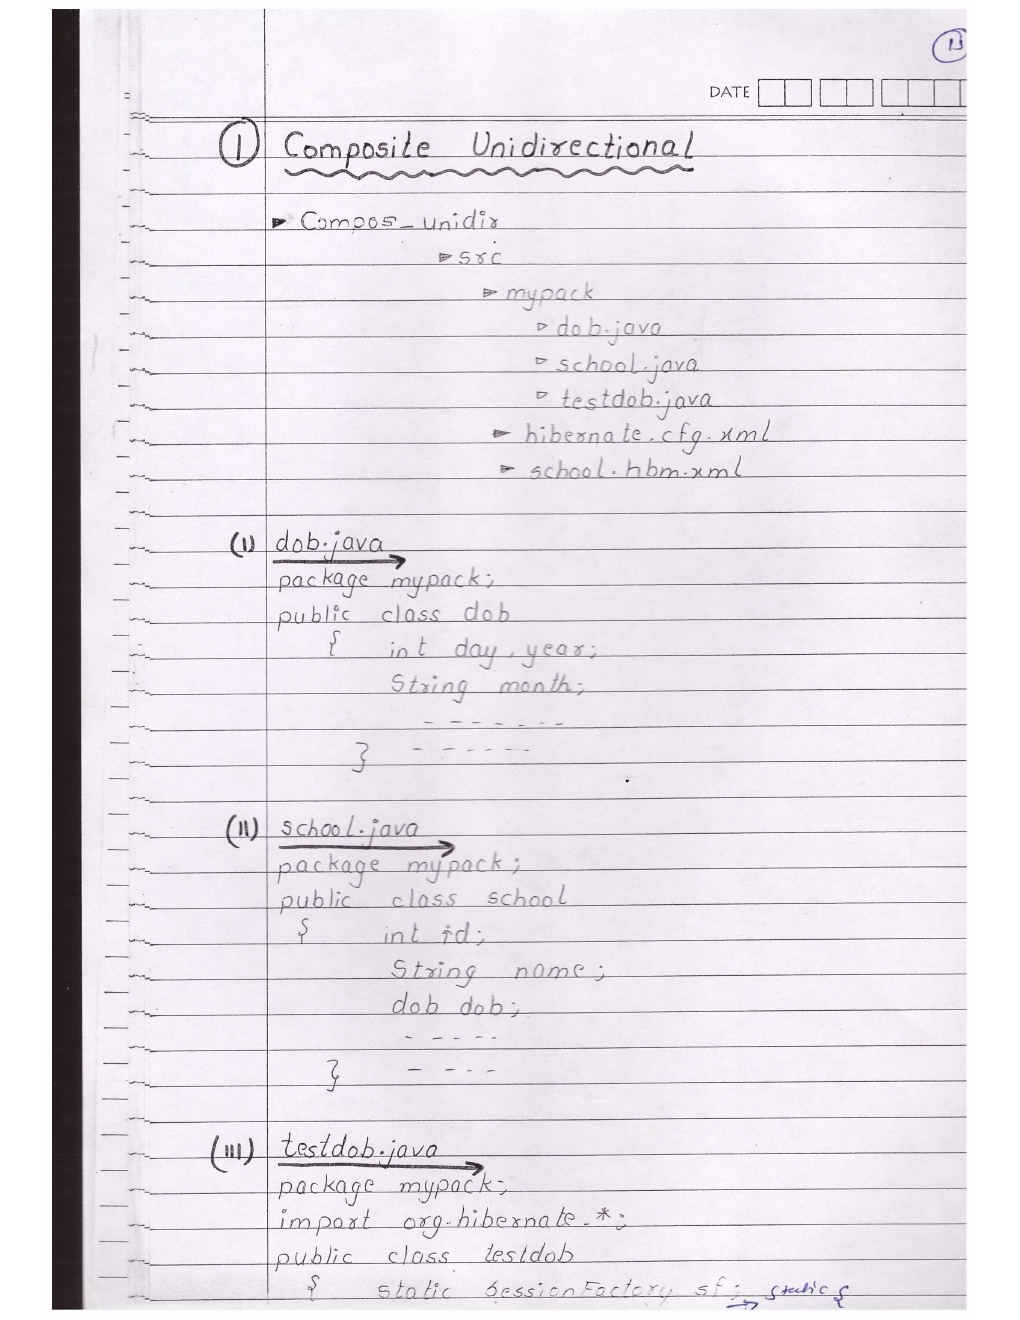 13
DATE
1 Composite Unidirectional
Compos_unidir
src
mypack
dob.java
school.java
testdob.java
hibernate.cfg.xml
school.hbm.xml
(I) dob.java
package mypack;
public class dob
{ int day, year;
String month;
- - - - - - -
} - - - - - -
(II) school.java
package mypack;
public class school
{ int id;
String name;
dob dob;
- - - - -
} - - - -
(III) testdob.java
package mypack;
import org.hibernate.*;
public class testdob
{ static SessionFactory sf; → static {